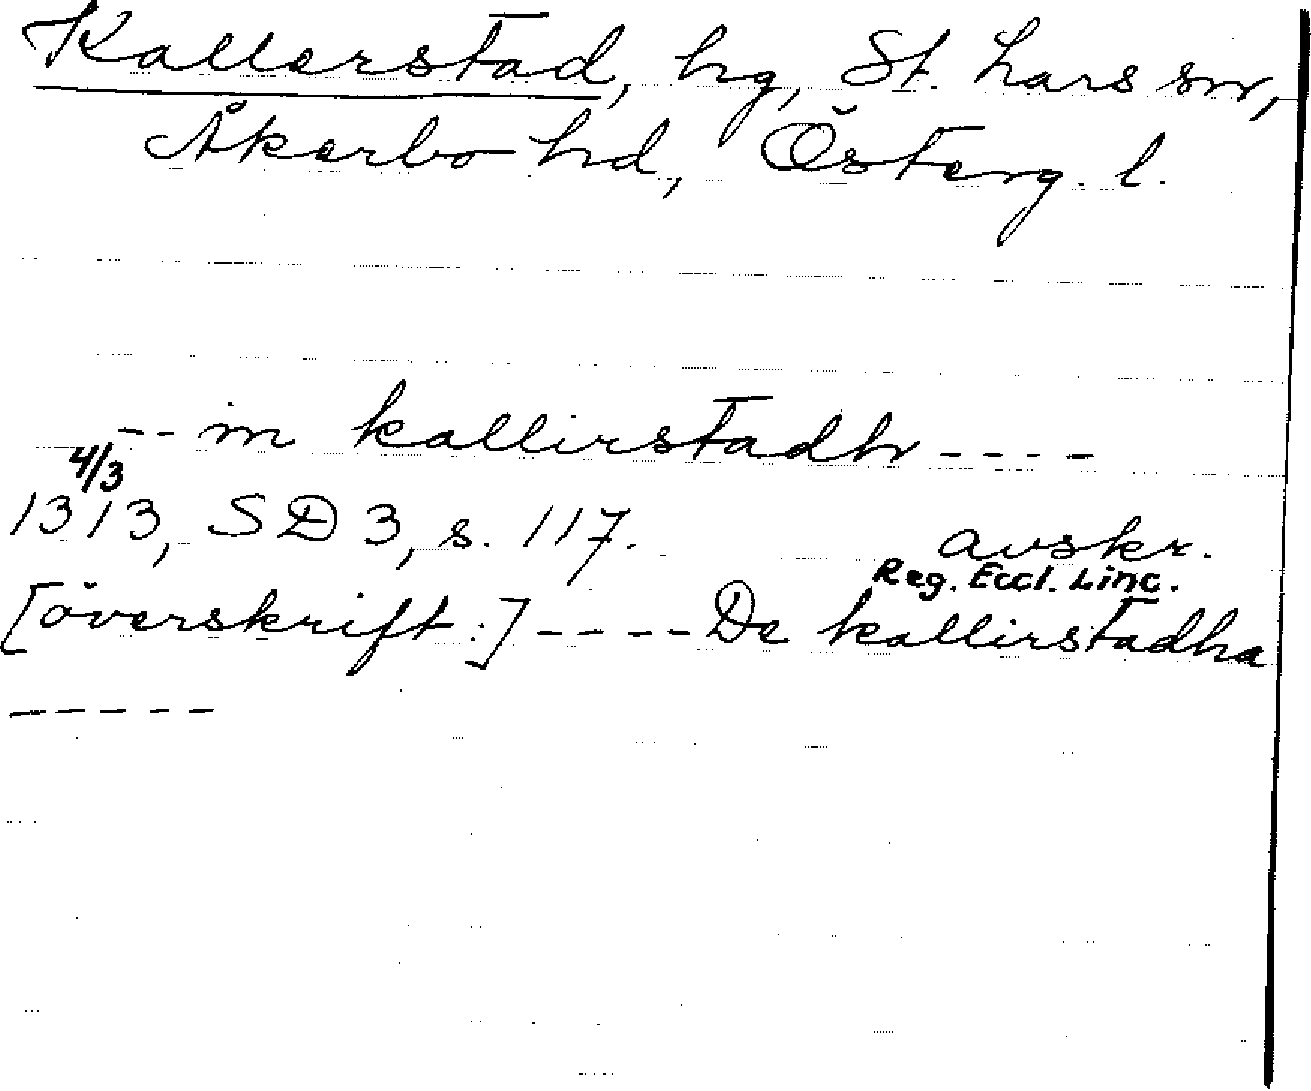 Kallerstad, hg, St. Lars sn,
Åkerbo hd, Österg. l.
-- in kallirstadh ----
4/3
1313, SD 3, s. 117. avskr.
Reg. Eccl. Linc.
[överskrift:] ---- De kallirstadha
-----